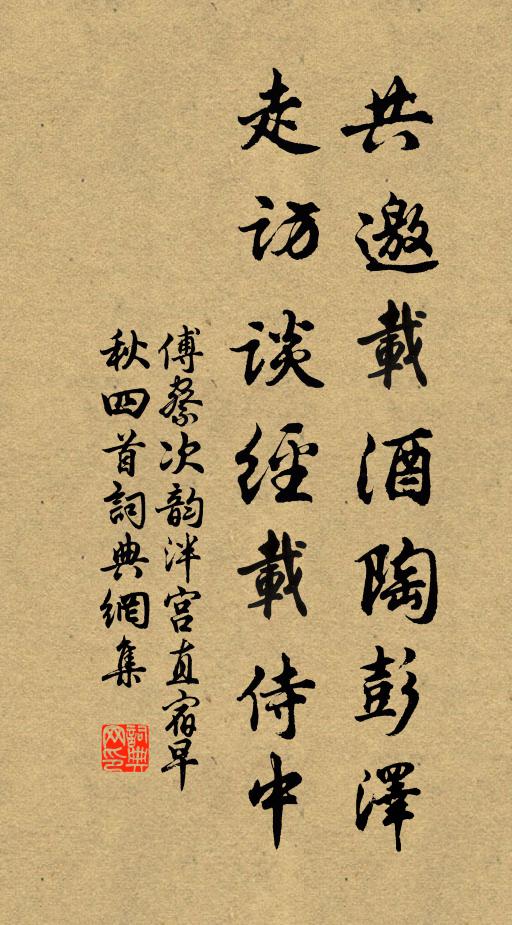 共邀載酒陶彭澤
走訪談經載侍中
傅察次韵泮宫直宿早
秋四首詞典網集
詞典網印